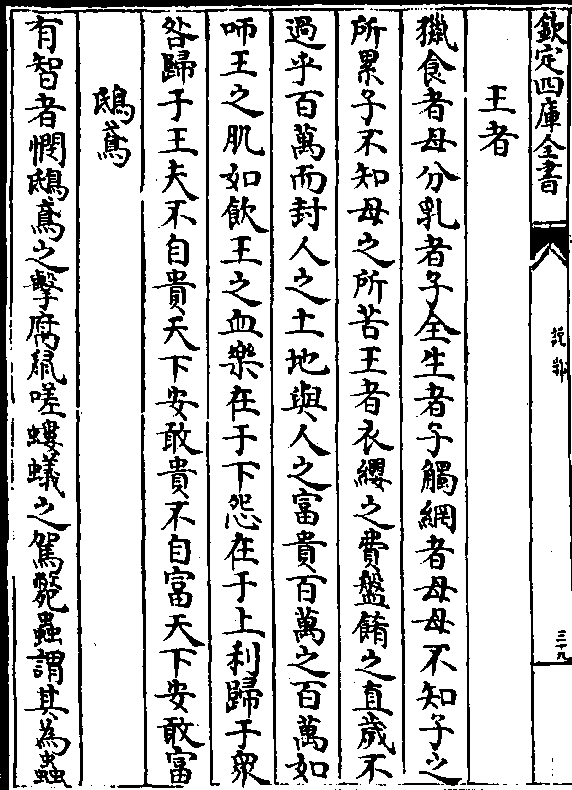 欽定四庫全書
說郛
三十九
王者
獵食者母分乳者子全生者子觸網者母母不知子之
所累子不知母之所苦王者衣纓之費盤餚之直歲不
過乎百萬而封人之土地與人之富貴百萬之百萬如
咂王之肌如飲王之血樂在于下怨在于上利歸于衆
咎歸于王夫不自貴天下安敢貴不自富天下安敢富
鴟鳶
有智者憫鴟鳶之擊腐鼠嗟螻蟻之駕斃蟲謂其為蟲